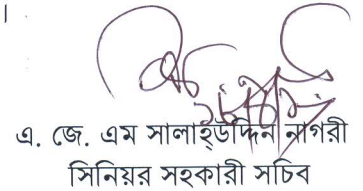 ।
এ. জে. এম সালাহ্উদ্দিন নাগরী
সিনিয়র সহকারী সচিব